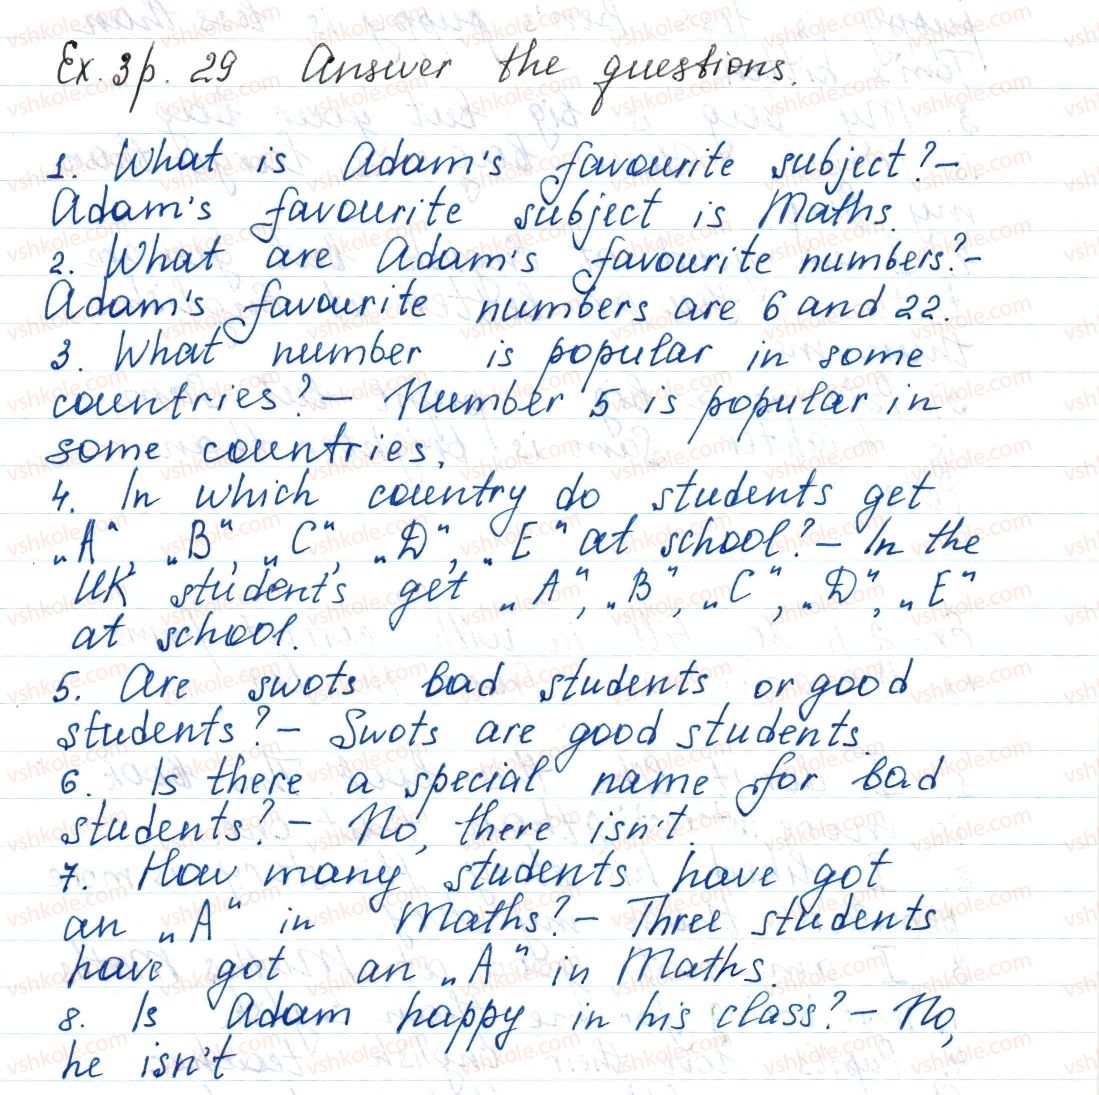 Ex. 3 p. 29 Answer the questions.
1. What is Adam's favourite subject? –
Adam's favourite subject is Maths.
2. What are Adam's favourite numbers? –
Adam's favourite numbers are 6 and 22.
3. What number is popular in some
countries? – Number 5 is popular in
some countries.
4. In which country do students get
„A", „B", „C", „D", „E" at school? – In the
UK students get „A", „B", „C", „D", „E"
at school.
5. Are swots bad students or good
students? – Swots are good students.
6. Is there a special name for bad
students? – No, there isn't.
7. How many students have got
an „A" in Maths? – Three students
have got an „A" in Maths.
8. Is Adam happy in his class? – No,
he isn't
vshkole.com